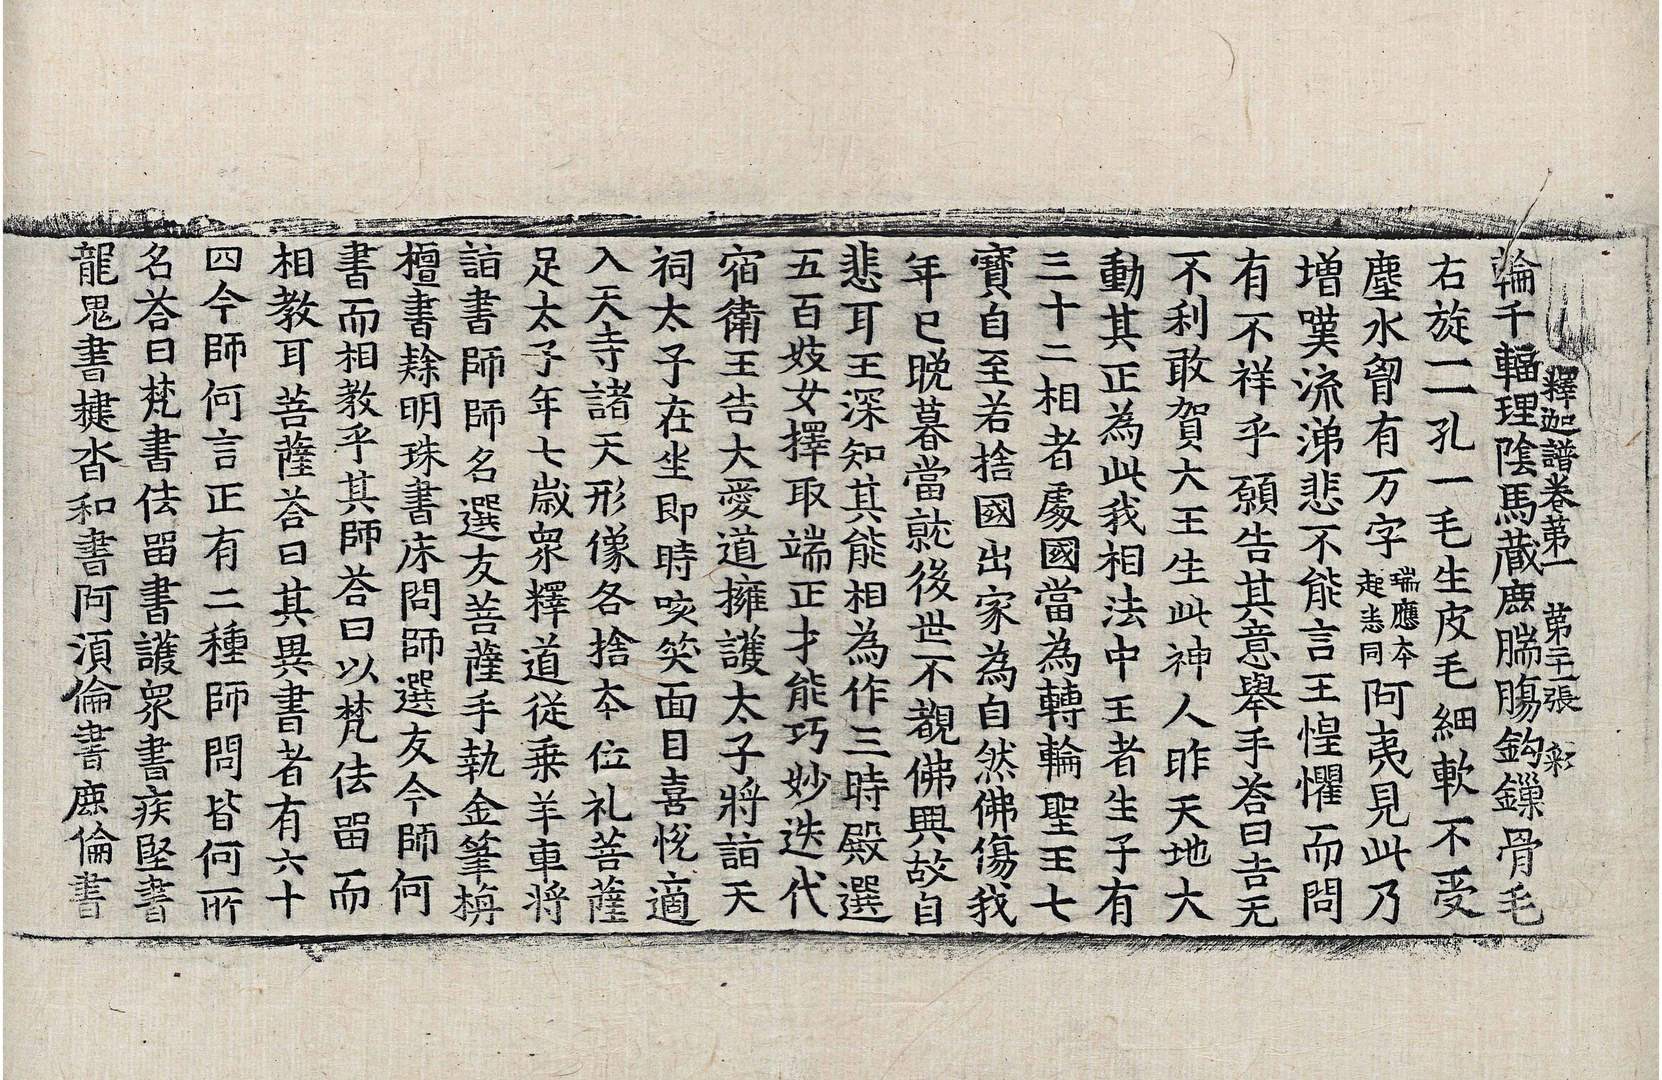 釋迦譜卷第一 第二十張 彩
輪千輻理陰馬藏鹿腨膓鈎鏁骨毛
右旋一一孔一毛生皮毛細軟不受
塵水胷有万字瑞應本起悉同阿夷見此乃
増嘆流涕悲不能言王惶懼而問
有不祥乎願告其意舉手荅曰吉无
不利敢賀大王生此神人昨天地大
動其正為此我相法中王者生子有
三十二相者處國當為轉輪聖王七
寶自至若捨國出家為自然佛傷我
年已晚暮當就後世不覩佛興故自
悲耳王深知其能相為作三時殿選
五百妓女擇取端正才能巧妙迭代
宿衛王告大愛道擁護太子將詣天
祠太子在坐即時咳笑面目喜悅適
入天寺諸天形像各捨本位礼菩薩
足太子年七歲衆釋道從乗羊車将
詣書師師名選友菩薩手執金筆栴
檀書隸明珠書床問師選友今師何
書而相教乎其師荅曰以梵佉留而
相教耳菩薩荅曰其異書者有六十
四今師何言正有二種師問皆何所
名荅曰梵書佉留書護衆書疾堅書
龍鬼書揵沓和書阿湏倫書鹿倫書